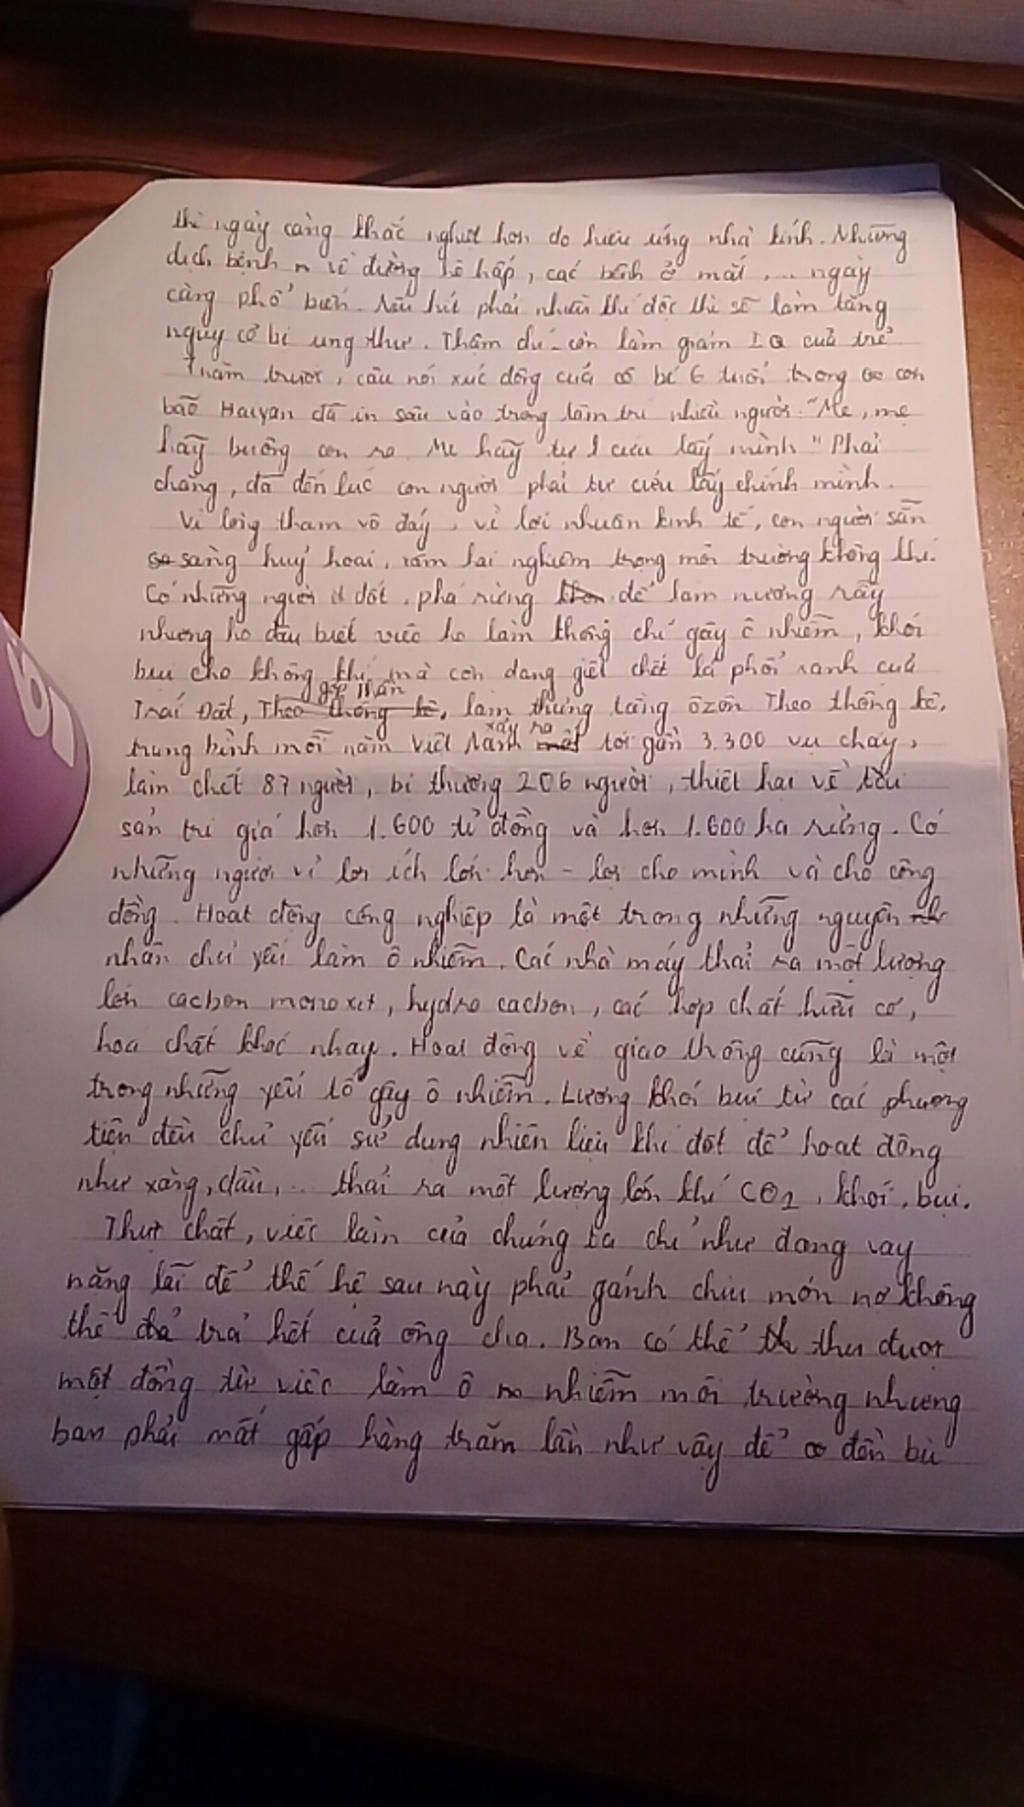 thì ngày càng khắc nghiệt hơn do hiệu ứng nhà kính. Những
dịch bệnh về đường hô hấp, các bệnh ở mắt, ... ngày
càng phổ biến. Nếu hít phải nhiều khí độc thì sẽ làm tăng
nguy cơ bị ung thư. Thậm chí còn làm giảm IQ của trẻ.
năm trước, câu nói xúc động của cô bé 6 tuổi trong cơn
bão Haiyan đã in sâu vào trong tâm trí nhiều người. "Mẹ, mẹ
hãy buông con ra. Mẹ hãy tự cứu lấy mình" Phải
chăng, đã đến lúc con người phải tự cứu lấy chính mình.
Vì lòng tham vô đáy, vì lợi nhuận kinh tế, con người sẵn
sàng huỷ hoại, xâm hại nghiêm trọng môi trường không khí.
Có những người đốt, phá rừng để làm nương rẫy
nhưng họ đâu biết việc họ làm không chỉ gây ô nhiễm, khói
bụi cho không khí mà còn đang giết chết lá phổi xanh của
Trái Đất, góp phần làm thủng tầng ôzôn. Theo thống kê,
trung bình mỗi năm Việt Nam xảy ra tới gần 3.300 vụ cháy,
làm chết 87 người, bị thương 206 người, thiệt hại về tài
sản trị giá hơn 1.600 tỉ đồng và hơn 1.600 ha rừng. Có
những người vì lợi ích lớn hơn - lợi cho mình và cho cộng
đồng. Hoạt động công nghiệp là một trong những nguyên
nhân chủ yếu làm ô nhiễm. Các nhà máy thải ra một lượng
lớn cacbon monoxit, hydro cacbon, các hợp chất hữu cơ,
hoá chất khác nhay. Hoạt động về giao thông cũng là một
trong những yếu tố gây ô nhiễm. Lượng khói bụi từ các phương
tiện đều chủ yếu sử dụng nhiên liệu khi đốt để hoạt động
như xăng, dầu, ... thải ra một lượng lớn khí CO2, khói, bụi.
Thực chất, việc làm của chúng ta chỉ như đang vay
nặng lãi để thế hệ sau này phải gánh chịu món nợ không
thể trả hết của ông cha. Bạn có thể thu được
một đồng từ việc làm ô nhiễm môi trường nhưng
bạn phải mất gấp hàng trăm lần như vậy để đền bù